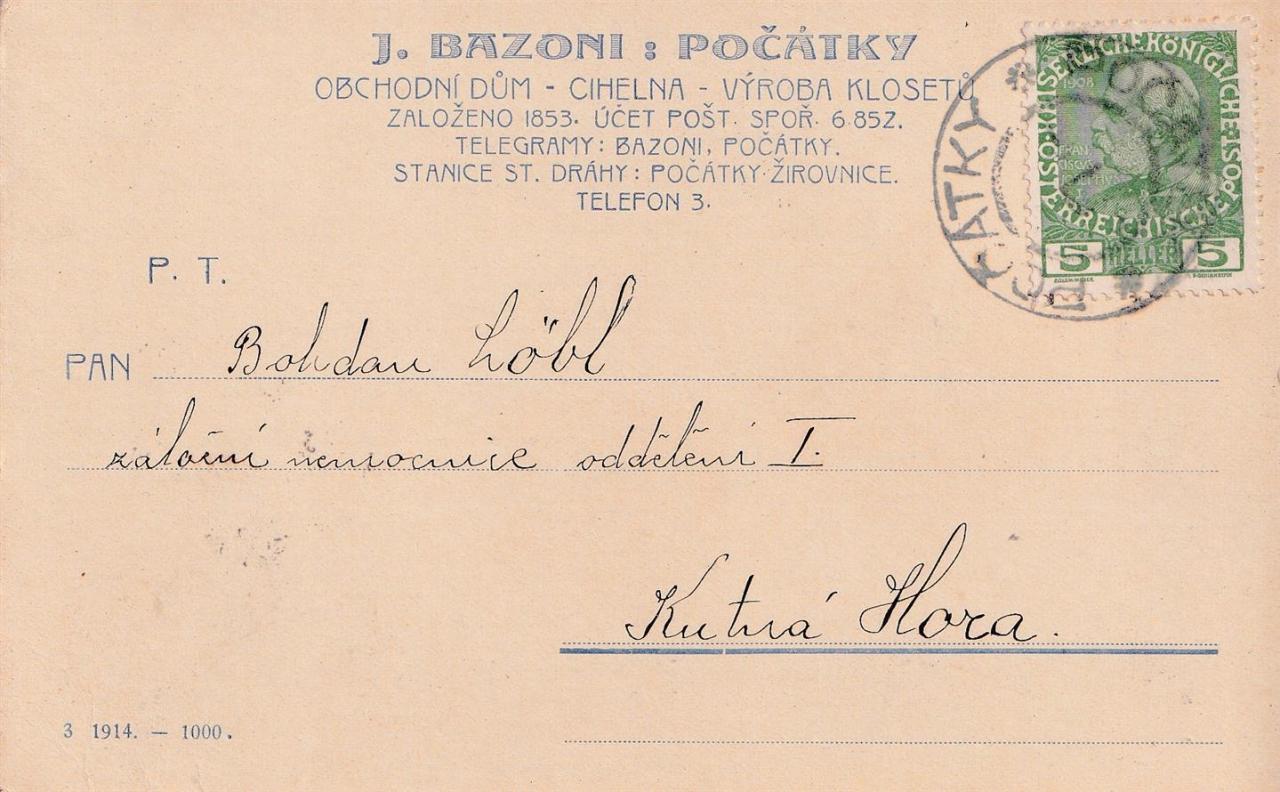 J. BAZONI : POČÁTKY
OBCHODNÍ DŮM - CIHELNA - VÝROBA KLOSETŮ
ZALOŽENO 1853. ÚČET POŠT. SPOŘ. 6.852.
TELEGRAMY: BAZONI, POČÁTKY.
STANICE ST. DRÁHY: POČÁTKY-ŽIROVNICE.
TELEFON 3.
KAISERLICHE KÖNIGLICHE ÖSTERREICHISCHE POST
1908
5 HELLER 5
POČÁTKY
P. T.
PAN Bohdan Löbl
záložní nemocnice oddělení I.
Kutná Hora.
3 1914. — 1000.